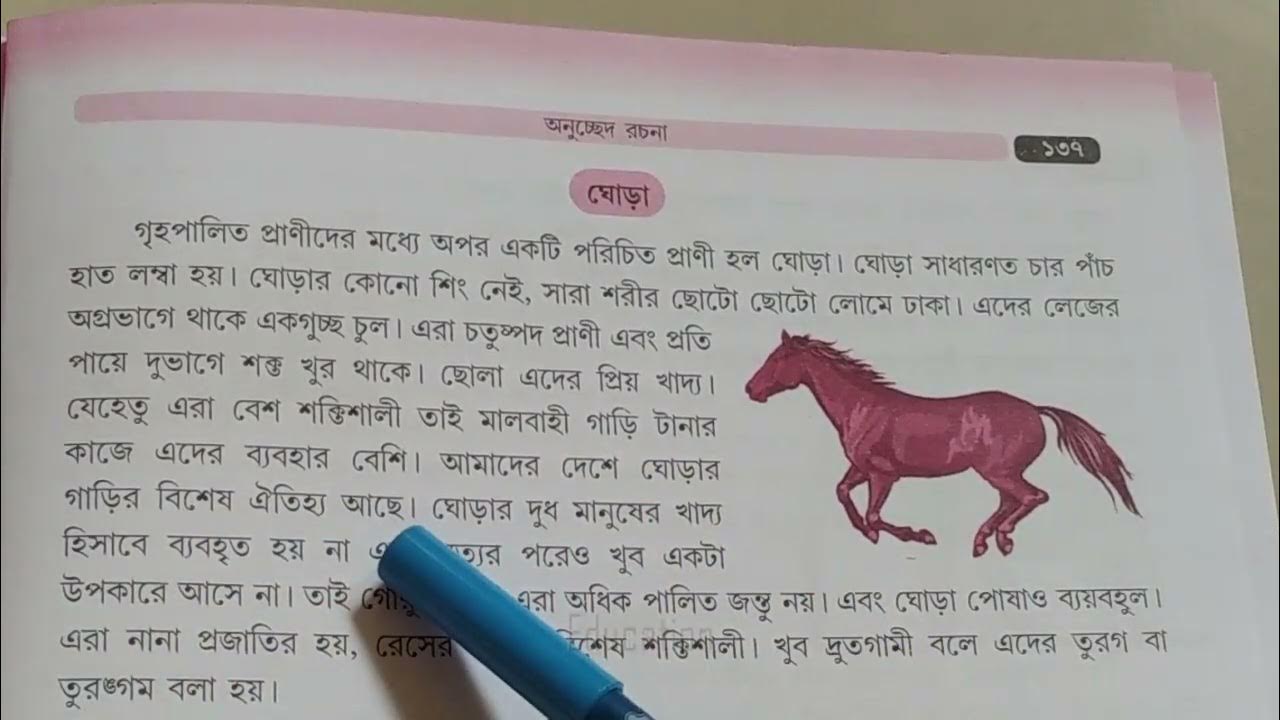 অনুচ্ছেদ রচনা
১৩৭
ঘোড়া
গৃহপালিত প্রাণীদের মধ্যে অপর একটি পরিচিত প্রাণী হল ঘোড়া। ঘোড়া সাধারণত চার পাঁচ
হাত লম্বা হয়। ঘোড়ার কোনো শিং নেই, সারা শরীর ছোটো ছোটো লোমে ঢাকা। এদের লেজের
অগ্রভাগে থাকে একগুচ্ছ চুল। এরা চতুষ্পদ প্রাণী এবং প্রতি
পায়ে দুভাগে শক্ত খুর থাকে। ছোলা এদের প্রিয় খাদ্য।
যেহেতু এরা বেশ শক্তিশালী তাই মালবাহী গাড়ি টানার
কাজে এদের ব্যবহার বেশি। আমাদের দেশে ঘোড়ার
গাড়ির বিশেষ ঐতিহ্য আছে। ঘোড়ার দুধ মানুষের খাদ্য
হিসাবে ব্যবহৃত হয় না পরেও খুব একটা
উপকারে আসে না। তাই এরা অধিক পালিত জন্তু নয়। এবং ঘোড়া পোষাও ব্যয়বহুল।
এরা নানা প্রজাতির হয়, রেসের শক্তিশালী। খুব দ্রুতগামী বলে এদের তুরগ বা
তুরঙ্গম বলা হয়।
Education